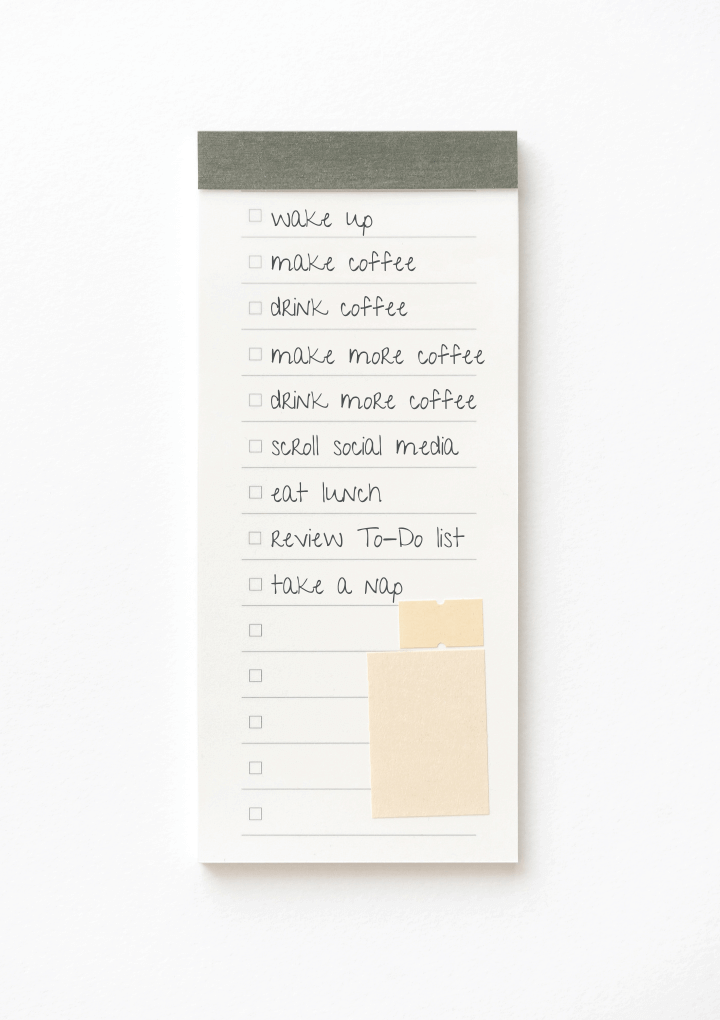 wake up
make coffee
drink coffee
make more coffee
drink more coffee
scroll social media
eat lunch
review To-Do list
take a nap